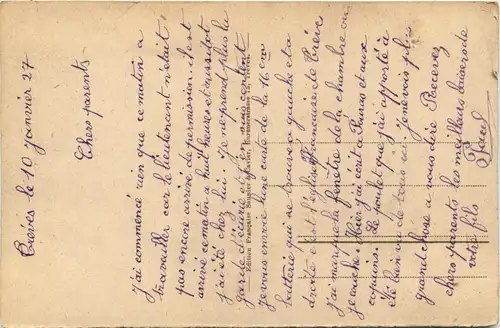 Trèves le 10 Janvier 27
Chers parents
j'ai commencé rien que ce matin a
travailler car le lieutenant n'était
pas encore arrivé de permission. il est
arrivé ce matin a huit heures et aussitot
j'ai été chez lui. Je ne prend plus la
garde d'écurie et j'en suis content
Je vous envoie une carte de la 16 eme
batterie qui se trouve a gauche et a
droite c'est l'église Française de Trève
j'ai marqué la fenêtre de la chambre ou
je couche. Hier j'ai écrit a et aux
copains. Le poulet que j'ai apporté a
été bien vu de tous un Je ne vois pas
grand chose a vous dire Recevez
chers parents les meilleurs baisers de
votre fils
Paul
Edition Française